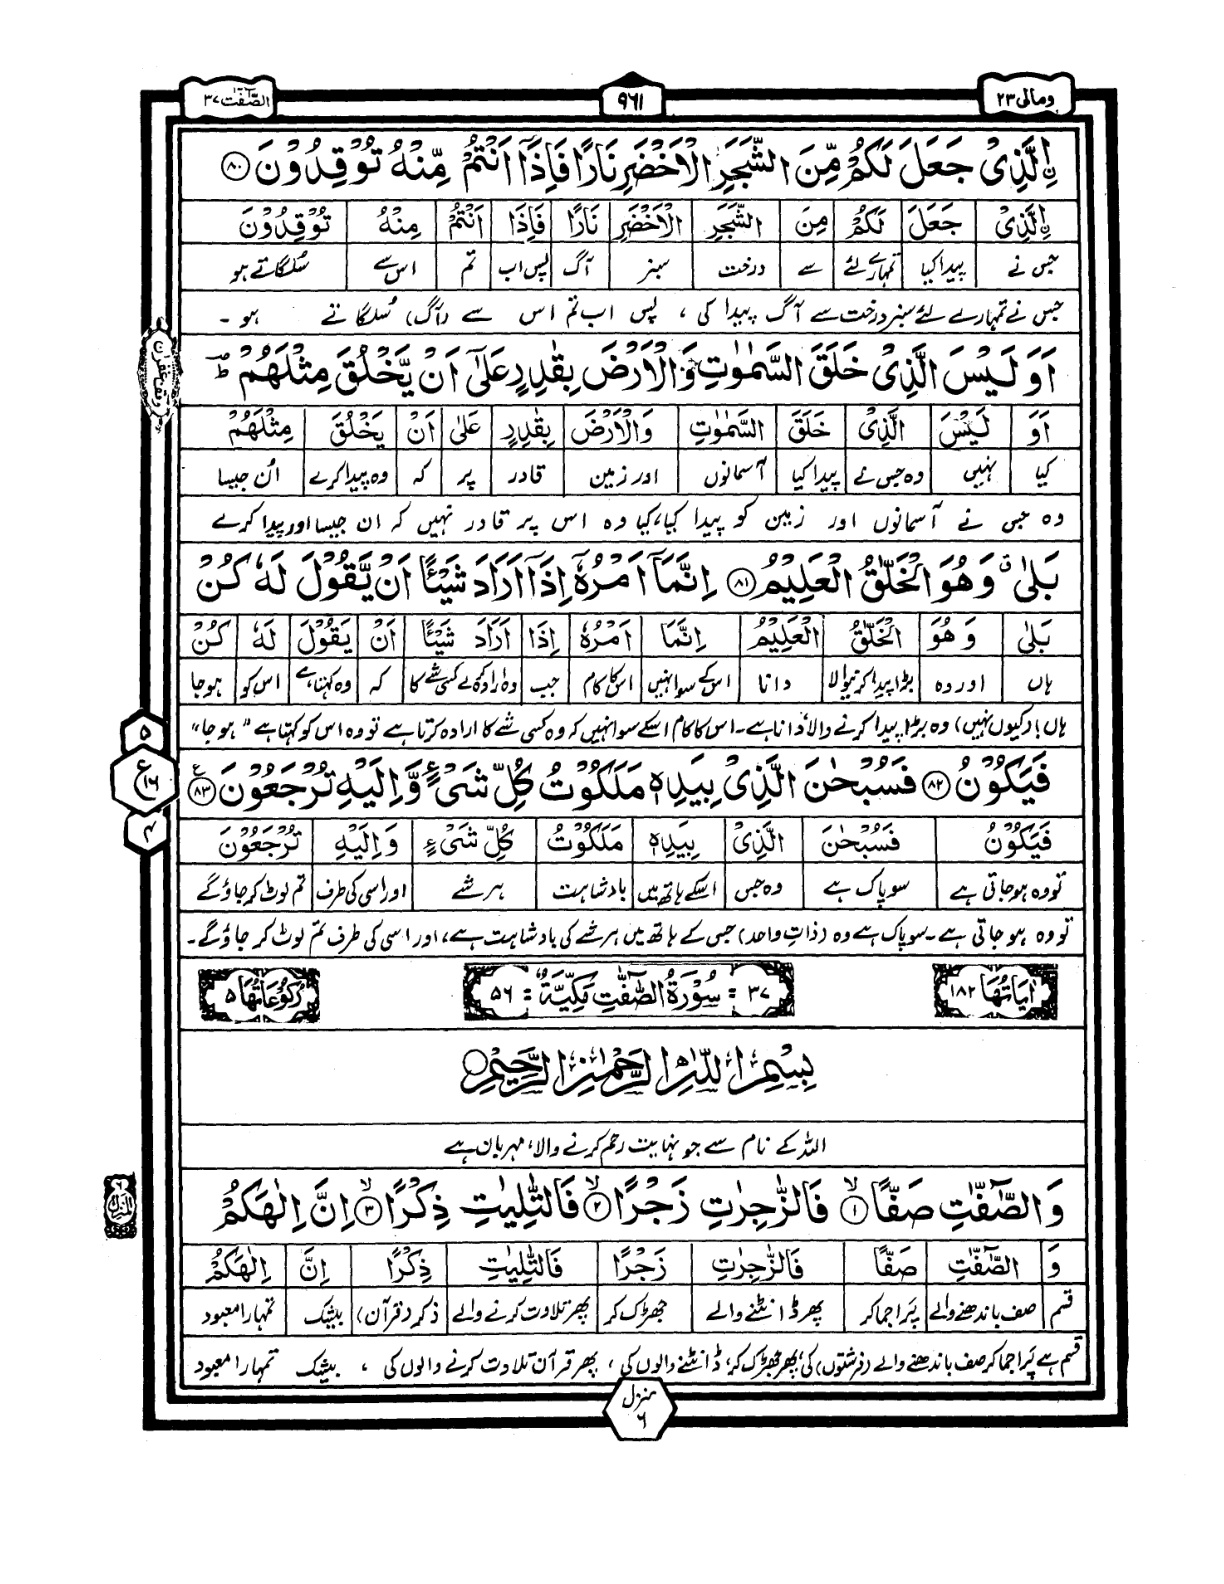 الصّٰٓفّٰت ۳۷
۹۶۱
ومالی ۲۳
اِۨلَّذِیْ جَعَلَ لَكُمْ مِّنَ الشَّجَرِ الْاَخْضَرِ نَارًا فَاِذَاۤ اَنْتُمْ مِّنْهُ تُوْقِدُوْنَ ﴿۸۰﴾
اِۨلَّذِیْ جَعَلَ لَكُمْ مِنَ الشَّجَرِ الْاَخْضَرِ نَارًا فَاِذَا اَنْتُمْ مِنْهُ تُوْقِدُوْنَ
جس نے پیدا کیا تمہارے لئے سے درخت سبز آگ پس اب تم اس سے سُلگاتے ہو
جس نے تمہارے لئے سبز درخت سے آگ پیدا کی ، پس اب تم اس سے (آگ) سُلگاتے ہو ۔
وقف غفران
اَوَ لَیْسَ الَّذِیْ خَلَقَ السَّمٰوٰتِ وَالْاَرْضَ بِقٰدِرٍ عَلٰۤی اَنْ یَّخْلُقَ مِثْلَهُمْ ؕ
اَوَ لَیْسَ الَّذِیْ خَلَقَ السَّمٰوٰتِ وَالْاَرْضَ بِقٰدِرٍ عَلٰی اَنْ یَخْلُقَ مِثْلَهُمْ
کیا نہیں وہ جس نے پیدا کیا آسمانوں اور زمین قادر پر کہ وہ پیدا کرے اُن جیسا
وہ جس نے آسمانوں اور زمین کو پیدا کیا، کیا وہ اس پر قادر نہیں کہ ان جیسا اور پیدا کرے
بَلٰی ۗ وَهُوَ الْخَلّٰقُ الْعَلِیْمُ ﴿۸۱﴾ اِنَّمَاۤ اَمْرُهٗۤ اِذَاۤ اَرَادَ شَیْـًٔا اَنْ یَّقُوْلَ لَهٗ كُنْ
بَلٰی وَهُوَ الْخَلّٰقُ الْعَلِیْمُ اِنَّمَا اَمْرُهٗ اِذَا اَرَادَ شَیْـًٔا اَنْ یَقُوْلَ لَهٗ كُنْ
ہاں اور وہ بڑا پیدا کرنیوالا دانا اس کے سوا نہیں اس کا کام جب وہ ارادہ کرے کسی شے کا کہ وہ کہتا ہے اس کو ہوجا
ہاں! (کیوں نہیں) وہ بڑا پیدا کرنے والا دانا ہے۔ اس کا کام اسکے سوا نہیں کہ وہ کسی شے کا ارادہ کرتا ہے تو وہ اس کو کہتا ہے "ہو جا"
۵
ع
۱۶
۴
فَیَكُوْنُ ﴿۸۲﴾ فَسُبْحٰنَ الَّذِیْ بِیَدِهٖ مَلَكُوْتُ كُلِّ شَیْءٍ وَّاِلَیْهِ تُرْجَعُوْنَ ﴿۸۳﴾ ع
فَیَكُوْنُ فَسُبْحٰنَ الَّذِیْ بِیَدِهٖ مَلَكُوْتُ كُلِّ شَیْءٍ وَاِلَیْهِ تُرْجَعُوْنَ
تو وہ ہوجاتی ہے سو پاک ہے وہ جس اسکے ہاتھ میں بادشاہت ہر شے اور اسی کی طرف تم لوٹ کر جاؤگے
تو وہ ہو جاتی ہے۔ سو پاک ہے وہ (ذاتِ واحد) جس کے ہاتھ میں ہر شے کی بادشاہت ہے، اور اسی کی طرف تم لوٹ کر جاؤگے۔
اٰیَاتُهَا ۱۸۲
۳۷ = سُوْرَةُ الصّٰٓفّٰتِ مَكِّیَّةٌ = ۵۶
رُكُوْعَاتُهَا ۵
بِسْمِ اللّٰهِ الرَّحْمٰنِ الرَّحِیْمِ
اللہ کے نام سے جو نہایت رحم کرنے والا، مہربان ہے
وَالصّٰٓفّٰتِ صَفًّا ﴿۱﴾ ۙ فَالزّٰجِرٰتِ زَجْرًا ﴿۲﴾ ۙ فَالتّٰلِیٰتِ ذِكْرًا ﴿۳﴾ ۙ اِنَّ اِلٰهَكُمْ
المنزل ۶
وَ الصّٰٓفّٰتِ صَفًّا فَالزّٰجِرٰتِ زَجْرًا فَالتّٰلِیٰتِ ذِكْرًا اِنَّ اِلٰهَكُمْ
قسم صف باندھنے والے پَرا جما کر پھر ڈانٹنے والے جھڑک کر پھر تلاوت کرنے والے ذکر (قرآن) بیشک تمہارا معبود
قسم ہے پَرا جما کر صف باندھنے والے (فرشتوں) کی؛ پھر جھڑک کر ڈانٹنے والوں کی ، پھر قرآن تلاوت کرنے والوں کی ، بیشک تمہارا معبود
منزل ۶